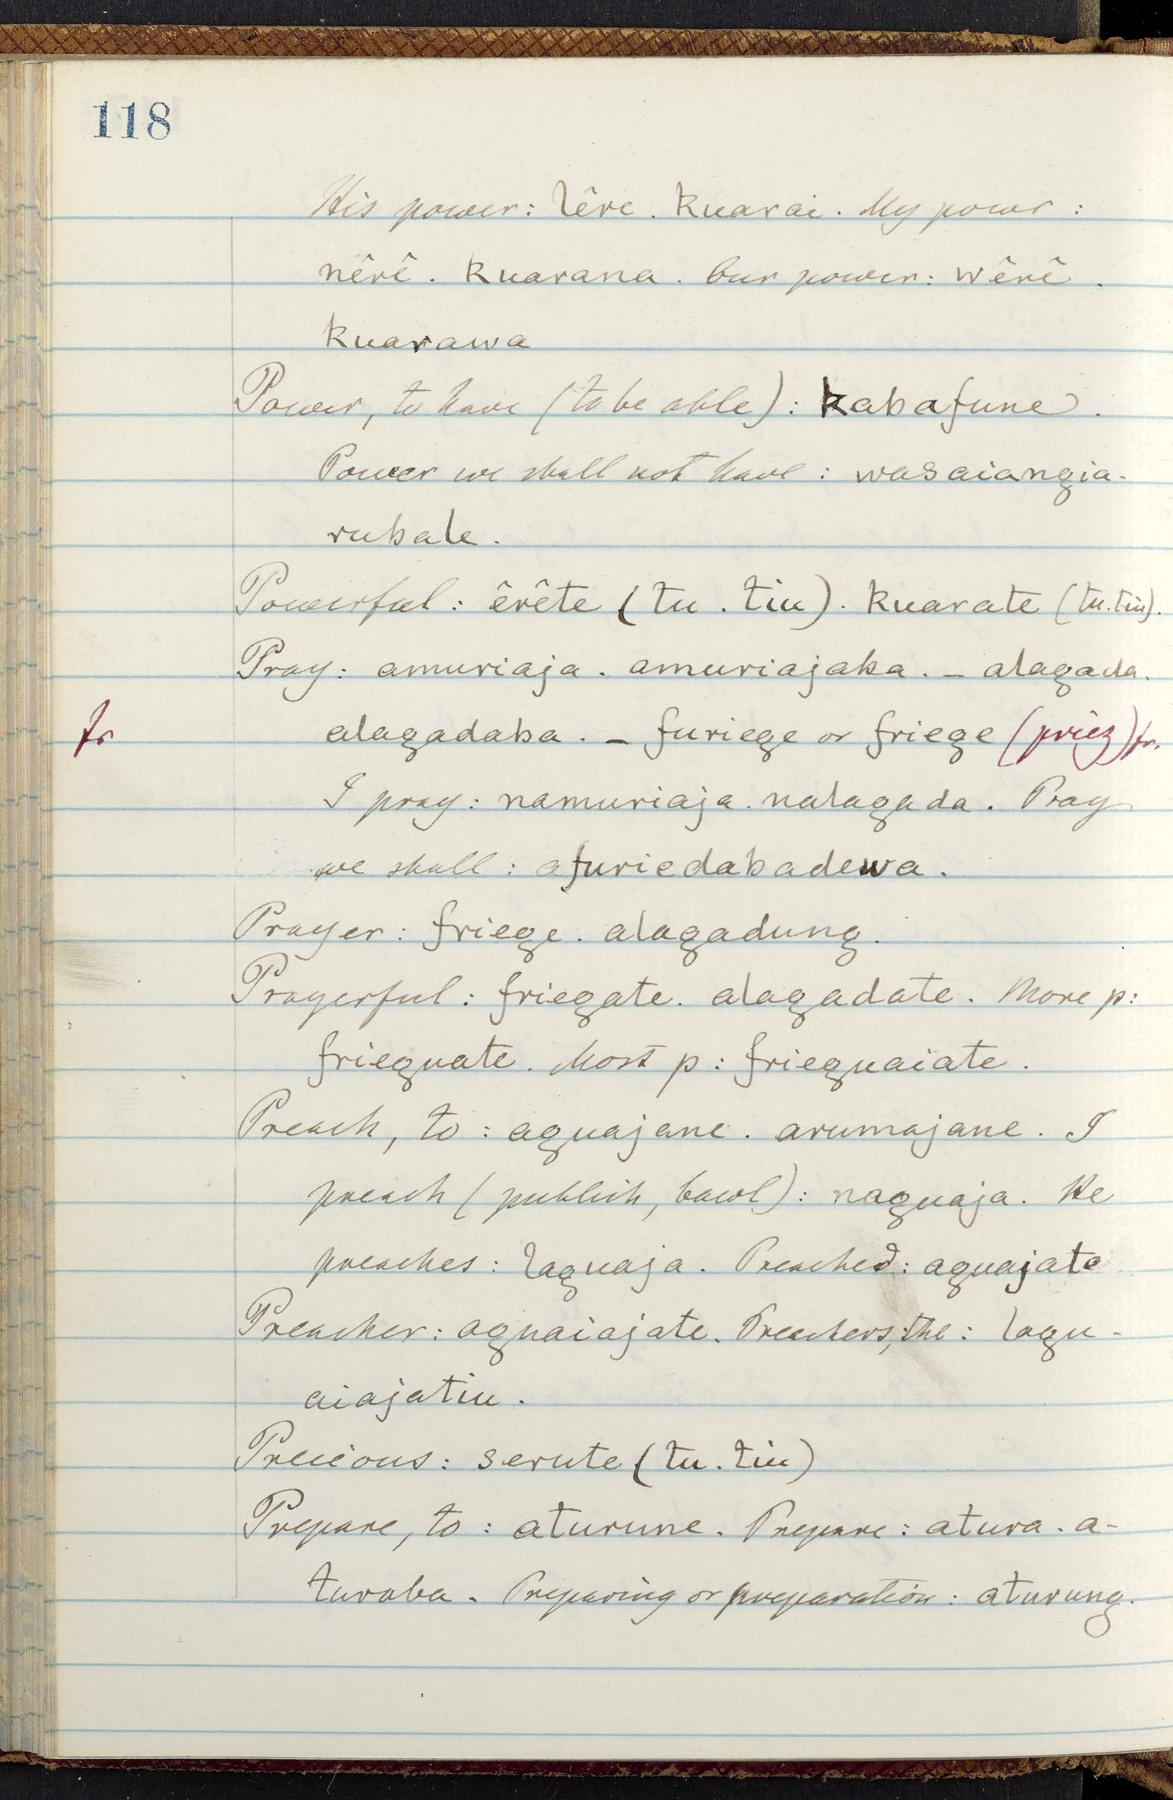 118
His power: lêre. kuarai. My powr:
nêrê. kuarana. Our power: wêrê.
kuarawa
Power, to have (to be able): kabafune.
Power we shall not have: wasaiangia-
rubale.
Powerful: êrête (tu. tiu). kuarate (tu. tiu).
Pray: amuriaja. amuriajaba. – alagada.
fr alagadaba. – furiege or friege (priez) fr.
I pray: namuriaja. nalagada. Pray
we shall: afuriedabadewa.
Prayer: friege. alagadung.
Prayerful: friegate. alagadate. More p:
frieguate. Most p: frieguaiate.
Preach, to: aguajane. arumajane. I
preach (publish, bawl): naguaja. He
preaches: laguaja. Preached: aguajate
Preacher: aguaiajate. Preachers, the: lagu-
aiajatiu.
Precious: serute (tu. tiu)
Prepare, to: aturune. Prepare: atura. a-
turaba. Preparing or preparation: aturung.